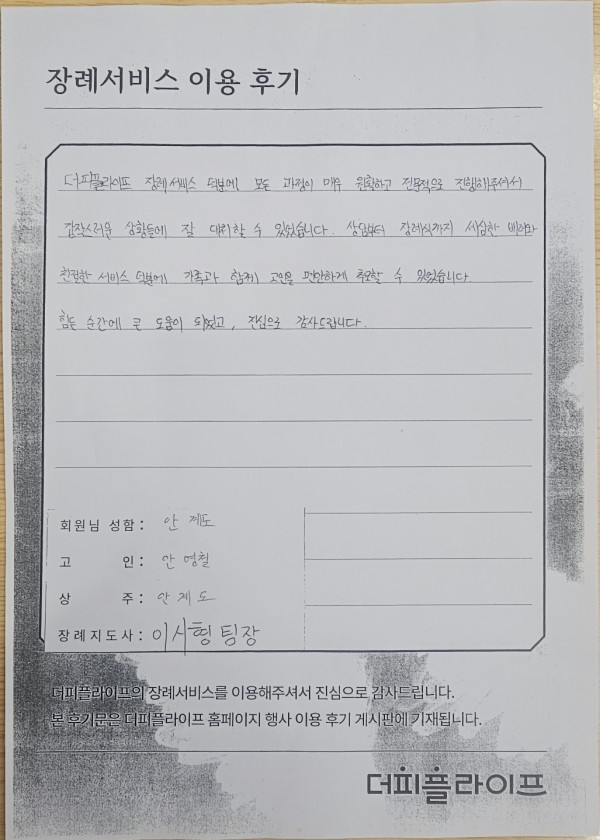 장례서비스 이용 후기
더피플라이프 장례서비스 덕분에 모든 과정이 매우 원활하고 전문적으로 진행해주셔서
갑작스러운 상황들에 잘 대처할 수 있었습니다. 상담부터 장례식까지 세심한 배려와
친절한 서비스 덕분에 가족과 함께 고인을 편안하게 추모할 수 있었습니다.
힘든 순간에 큰 도움이 되었고, 진심으로 감사드립니다.
회원님 성함: 안제도
고 인: 안영철
상 주: 안제도
장례지도사: 이시형 팀장
더피플라이프의 장례서비스를 이용해주셔서 진심으로 감사드립니다.
본 후기문은 더피플라이프 홈페이지 행사 이용 후기 게시판에 기재됩니다.
더피플라이프